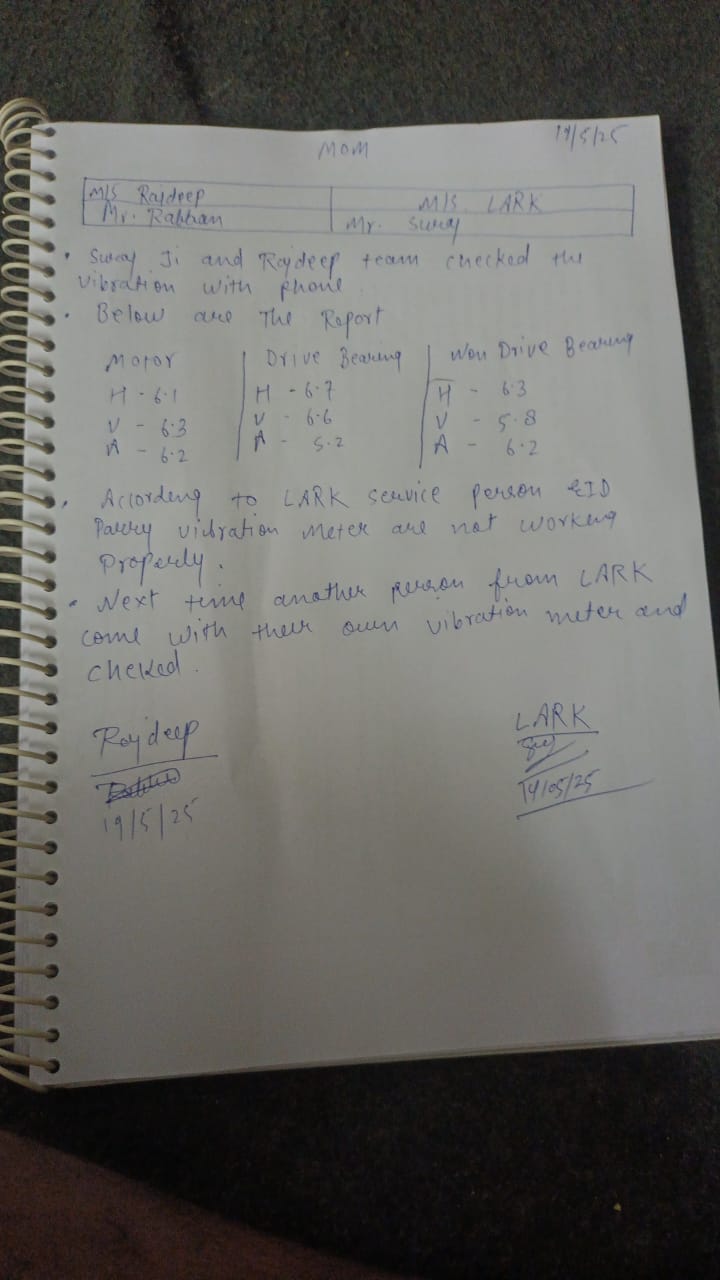 MOM
19/5/25
M/S Rajdeep M/S. LARK
Mr. Rabhan Mr. Suraj
• Suraj Ji and Rajdeep team checked the
vibration with phone.
• Below are The Report
Motor Drive Bearing Non Drive Bearing
H - 6.1 H - 6.7 H - 6.3
V - 6.3 V - 6.6 V - 5.8
A - 6.2 A - 5.2 A - 6.2
• According to LARK service person EID
Parry vibration meter are not working
Properly.
• Next time another person from LARK
come with their own vibration meter and
cheked.
Rajdeep LARK
19/5/25 19/05/25